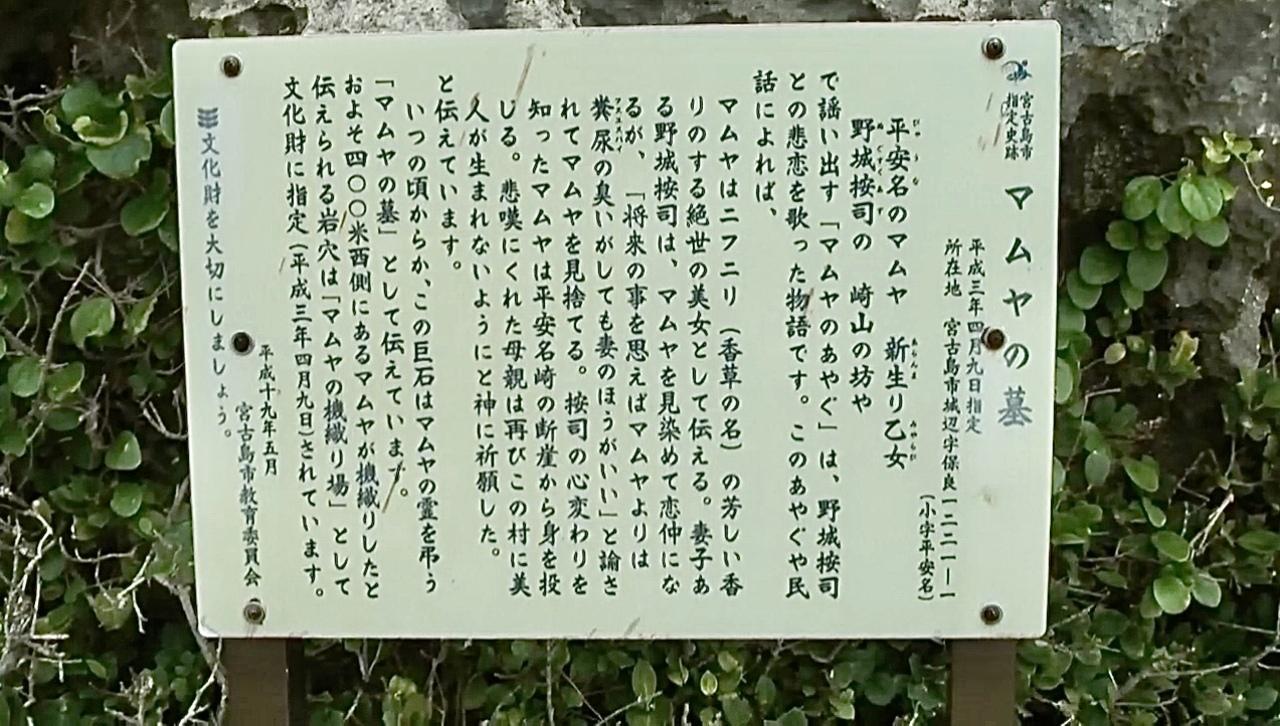 宮古島市
指定史跡
マムヤの墓
平成三年四月九日指定
所在地 宮古島市城辺字保良一二二一―一
(小字平安名)
平安名のマムヤ 新生り乙女
野城按司の 崎山の坊や
で謡い出す「マムヤのあやぐ」は、野城按司
との悲恋を歌った物語です。このあやぐや民
話によれば、
マムヤはニフニリ(香草の名)の芳しい香
りのする絶世の美女として伝える。妻子あ
る野城按司は、マムヤを見染めて恋仲にな
るが、「将来の事を思えばマムヤよりは
糞尿の臭いがしても妻のほうがいい」と諭さ
れてマムヤを見捨てる。按司の心変わりを
知ったマムヤは平安名崎の断崖から身を投
じる。悲嘆にくれた母親は再びこの村に美
人が生まれないようにと神に祈願した。
と伝えています。
いつの頃からか、この巨石はマムヤの霊を弔う
「マムヤの墓」として伝えています。
およそ四〇〇米西側にあるマムヤが機織りしたと
伝えられる岩穴は「マムヤの機織り場」として
文化財に指定(平成三年四月九日)されています。
平成十九年五月
宮古島市教育委員会
文化財を大切にしましょう。